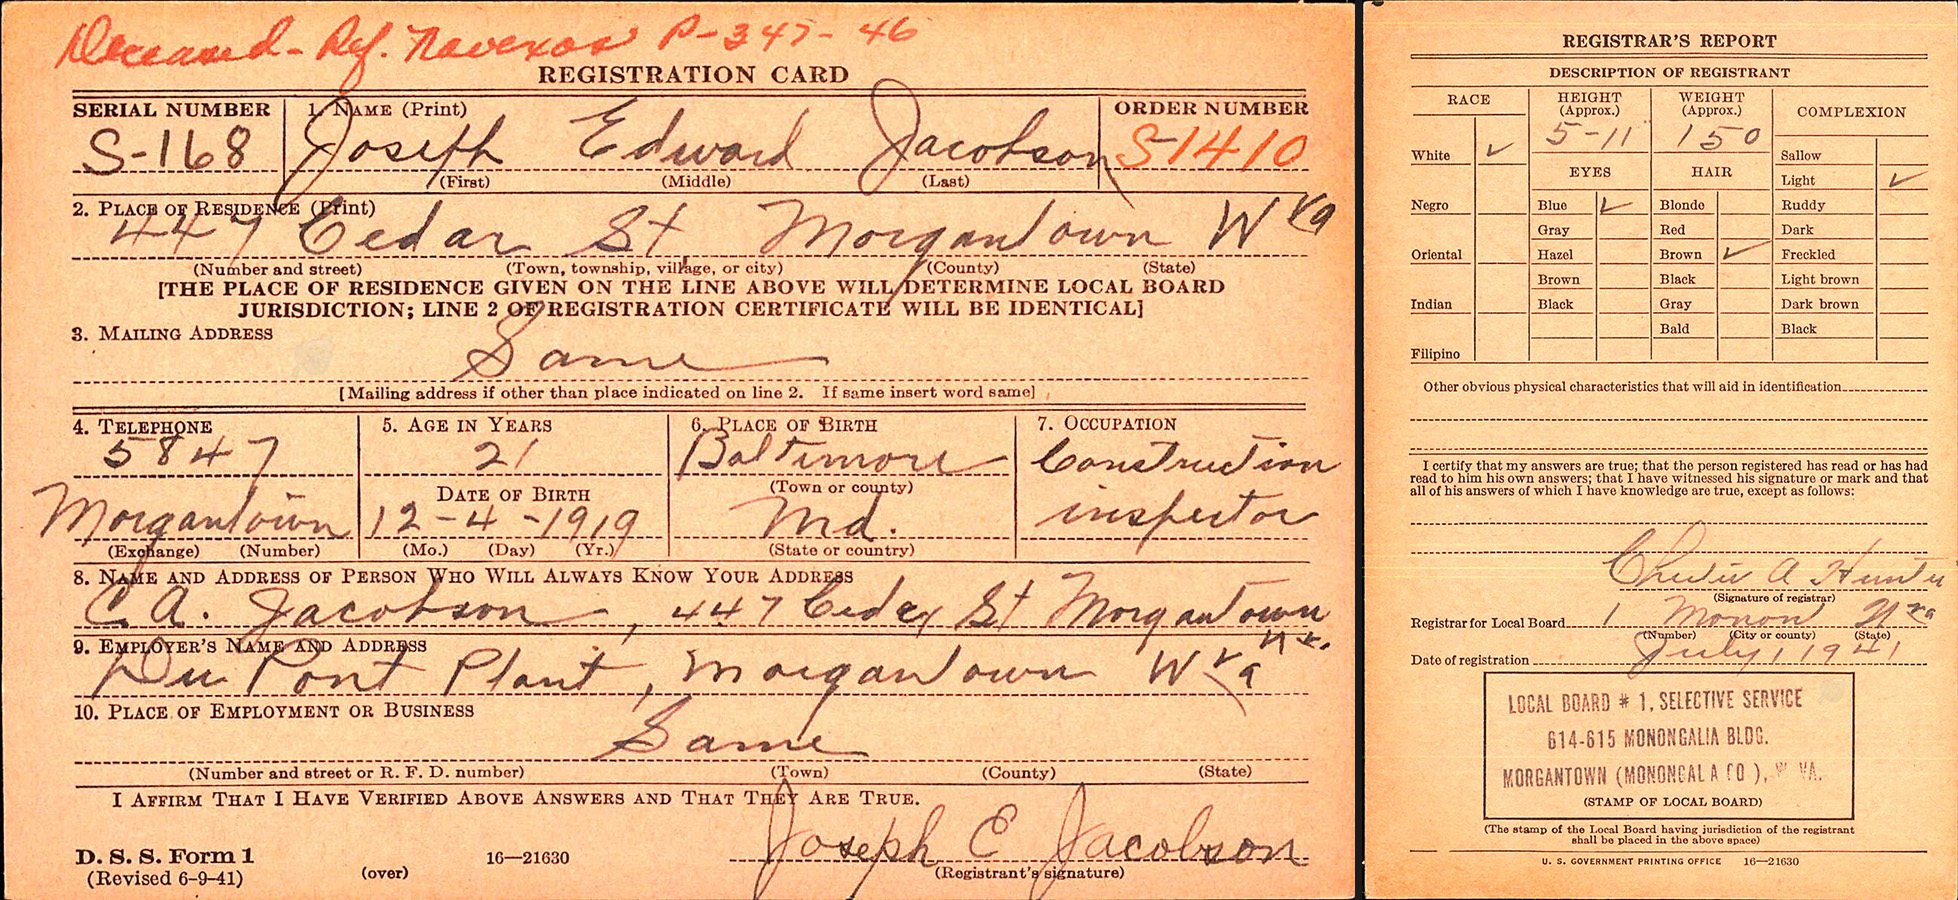 Deceased - Ref. Navexos P-347-46
REGISTRATION CARD
SERIAL NUMBER 1. NAME (Print) ORDER NUMBER
S-168 Joseph Edward Jacobson S-1410
(First) (Middle) (Last)
2. PLACE OF RESIDENCE (Print)
447 Cedar St Morgantown W Va
(Number and street) (Town, township, village, or city) (County) (State)
[THE PLACE OF RESIDENCE GIVEN ON THE LINE ABOVE WILL DETERMINE LOCAL BOARD
JURISDICTION; LINE 2 OF REGISTRATION CERTIFICATE WILL BE IDENTICAL]
3. MAILING ADDRESS
Same
[Mailing address if other than place indicated on line 2. If same insert word same]
4. TELEPHONE 5. AGE IN YEARS 6. PLACE OF BIRTH 7. OCCUPATION
5847 21 Baltimore Construction
(Town or county)
DATE OF BIRTH
Morgantown 12-4-1919 Md. inspector
(Exchange) (Number) (Mo.) (Day) (Yr.) (State or country)
8. NAME AND ADDRESS OF PERSON WHO WILL ALWAYS KNOW YOUR ADDRESS
C. A. Jacobson, 447 Cedar St Morgantown
9. EMPLOYER'S NAME AND ADDRESS
Du Pont Plant, Morgantown W Va
10. PLACE OF EMPLOYMENT OR BUSINESS
Same
(Number and street or R. F. D. number) (Town) (County) (State)
I AFFIRM THAT I HAVE VERIFIED ABOVE ANSWERS AND THAT THEY ARE TRUE.
Joseph E Jacobson
D. S. S. Form 1 16—21630
(Revised 6-9-41) (over) (Registrant's signature)
REGISTRAR'S REPORT
DESCRIPTION OF REGISTRANT
RACE HEIGHT (Approx.) WEIGHT (Approx.) COMPLEXION
5-11 150
White ✓ Sallow
EYES HAIR Light ✓
Negro Blue ✓ Blonde Ruddy
Gray Red Dark
Oriental Hazel Brown ✓ Freckled
Brown Black Light brown
Indian Black Gray Dark brown
Bald Black
Filipino
Other obvious physical characteristics that will aid in identification
I certify that my answers are true; that the person registered has read or has had
read to him his own answers; that I have witnessed his signature or mark and that
all of his answers of which I have knowledge are true, except as follows:
A Hunter
(Signature of registrar)
Registrar for Local Board 1 Monon W Va
(Number) (City or county) (State)
Date of registration July 1 1941
LOCAL BOARD # 1, SELECTIVE SERVICE
614-615 MONONGALIA BLDG.
MORGANTOWN (MONONGAL A CO ), W VA.
(STAMP OF LOCAL BOARD)
(The stamp of the Local Board having jurisdiction of the registrant
shall be placed in the above space)
U. S. GOVERNMENT PRINTING OFFICE 16—21630